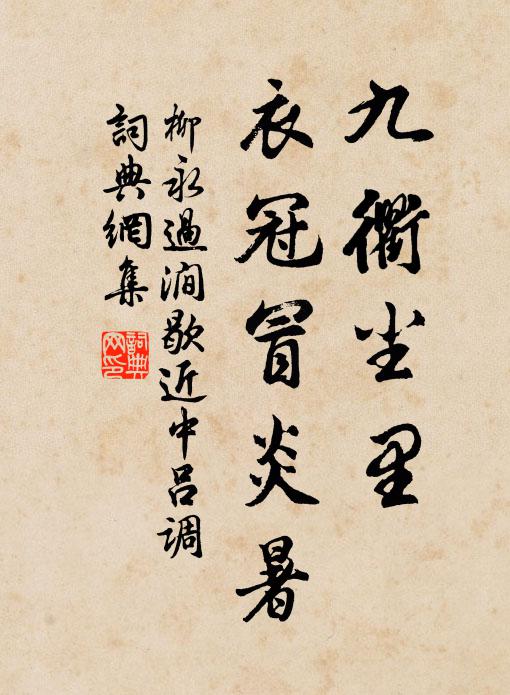 九衢尘里
衣冠冒炎暑
柳永過澗歇近中吕调
詞典網集
詞典网印